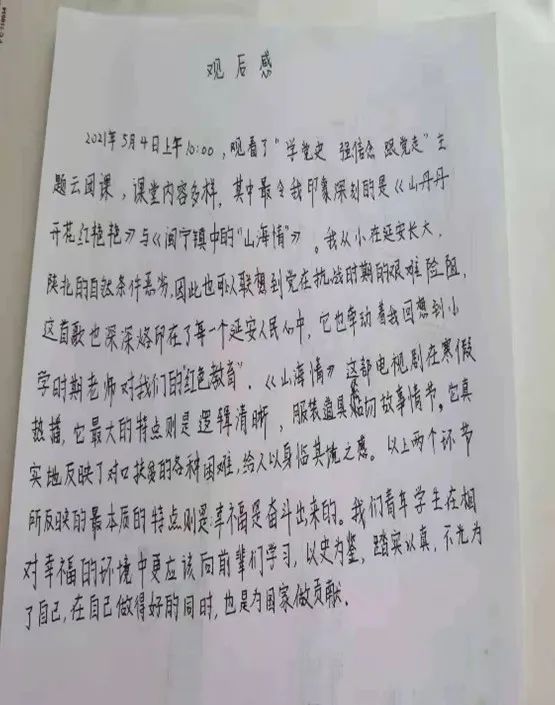 观后感
2021年5月4日上午10:00，观看了“学党史 强信念 跟党走”主
题云团课，课堂内容多样，其中最令我印象深刻的是《山丹丹
开花红艳艳》与《闽宁镇中的“山海情”》。我从小在延安长大，
陕北的自然条件恶劣，因此也可以联想到党在抗战时期的艰难险阻，
这首歌也深深烙印在了每一个延安人民心中，它也牵动着我回想到小
学时期老师对我们的“红色教育”。《山海情》这部电视剧在寒假
热播，它最大的特点则是逻辑清晰，服装道具贴切故事情节。它真
实地反映了对口扶贫的各种困难，给人以身临其境之感。以上两个环节
所反映的最本质的特点则是：幸福是奋斗出来的。我们青年学生在相
对幸福的环境中更应该向前辈们学习，以史为鉴，踏实认真，不光为
了自己，在自己做得好的同时，也是为国家做贡献.